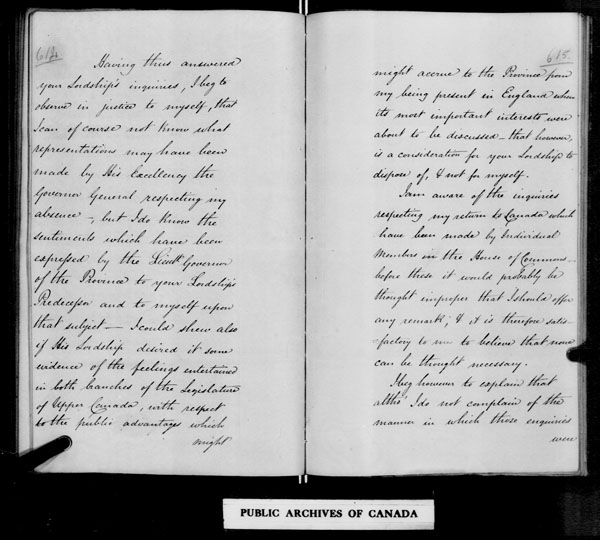 614
Having thus answered
your Lordship's inquiries, I beg to
observe in justice to myself, that
I can of course not know what
representations may have been
made by His Excellency the
Governor General respecting my
absence -, but I do know the
sentiments which have been
expressed by the Lieut. Governor
of the Province to your Lordship's
Predecessor and to myself upon
that subject — I could shew also
if His Lordship desired it some
evidence of the feelings entertained
in both branches of the Legislature
of Upper Canada, with respect
to the public advantages which
might
615
might accrue to the Province from
my being present in England when
its most important interests were
about to be discussed - that however,
is a consideration for your Lordship to
dispose of, & not for myself.
I am aware of the inquiries
respecting my return to Canada which
have been made by Individual
Members in the House of Commons -
before these it would probably be
thought improper that I should offer
any remark; & it is therefore satis-
factory to me to believe that none
can be thought necessary.
I beg however to explain that
altho' I do not complain of the
manner in which those enquiries
were
PUBLIC ARCHIVES OF CANADA